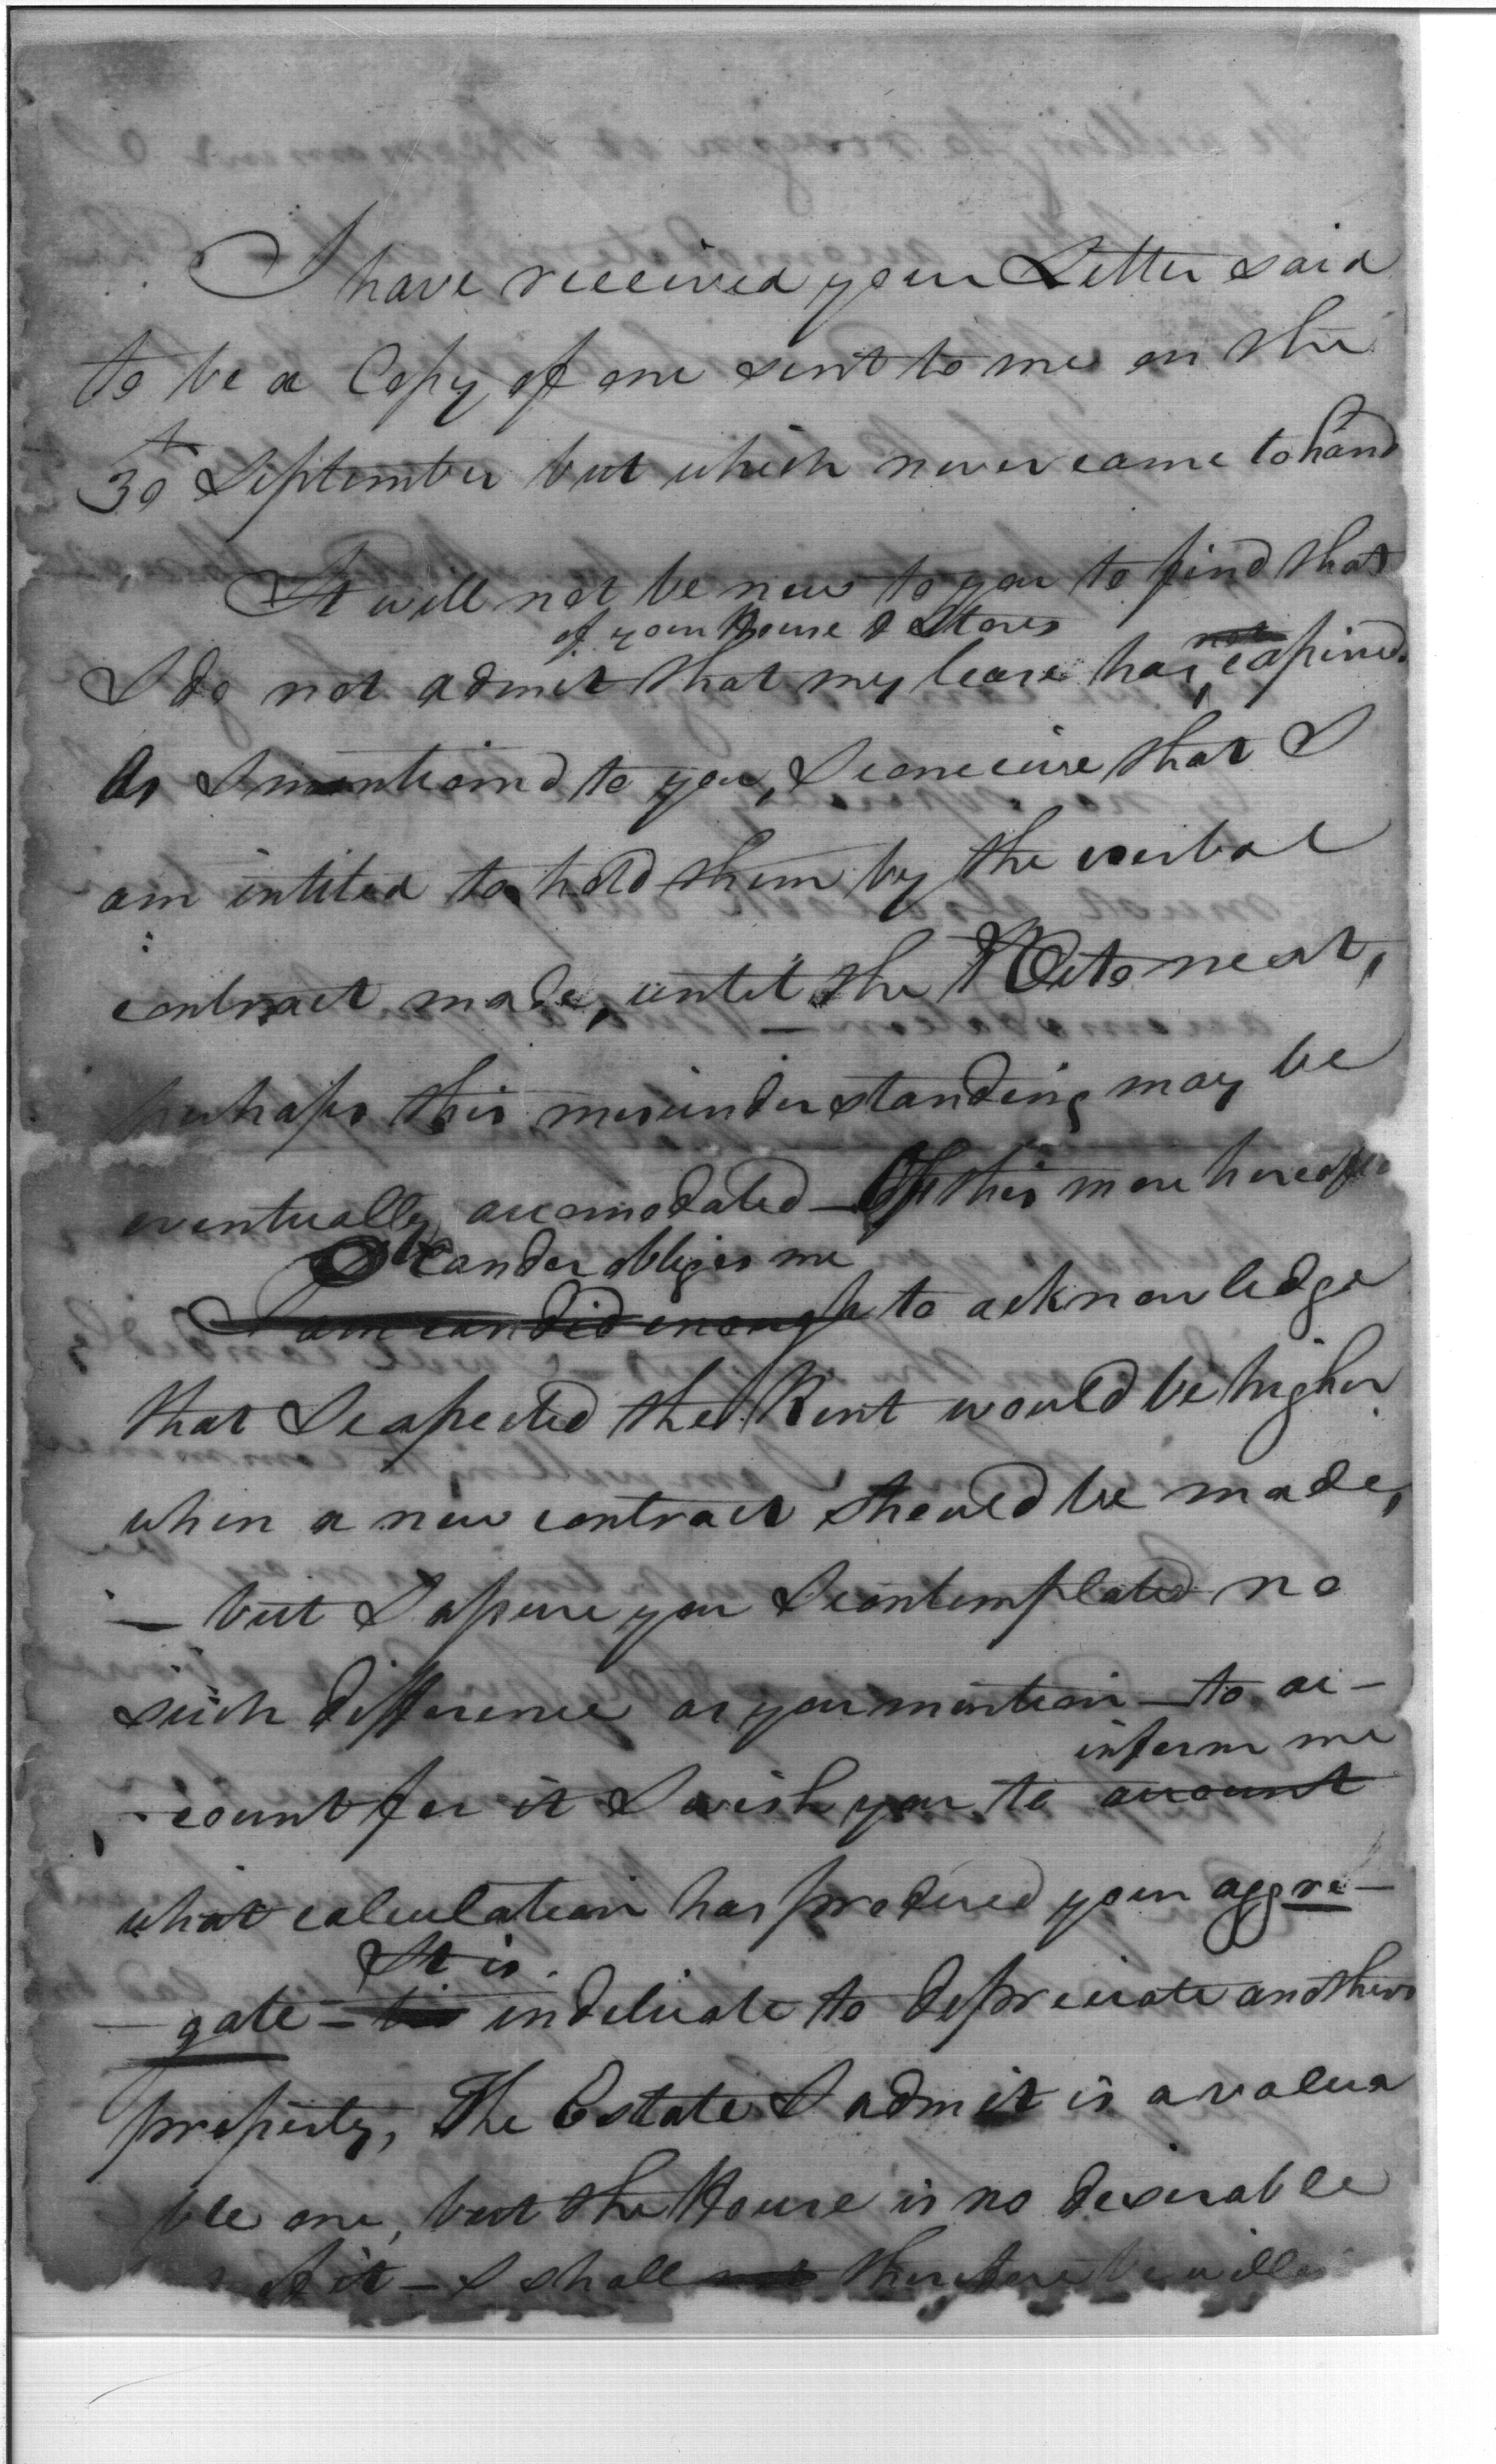 I have received your Letter said
to be a Copy of one sent to me on the
30th September but which never came to hand
It will not be new to you to find that
of your House & Stores
I do not admit that my lease has not expired.
As I mentiond to you, I conceive that I
am intitled to hold them by the verbal
contract made, until the next,
perhaps this misunderstanding may be
eventually accomodated — Of this more hereafter
candor obliges me
I am candid enough to acknowledge
that I expected the Rent would be higher
when a new contract should be made,
— but I assure you I contemplated no
such difference as you mention — to ac-
inform me
count for it I wish you to account
what calculation has produced your aggre-
It is
— gate — tis indelicate to depreciate anothers
property, The Estate I admit is a valua
ble one, but the House is no desirable
of it — I shall not therefore be willing